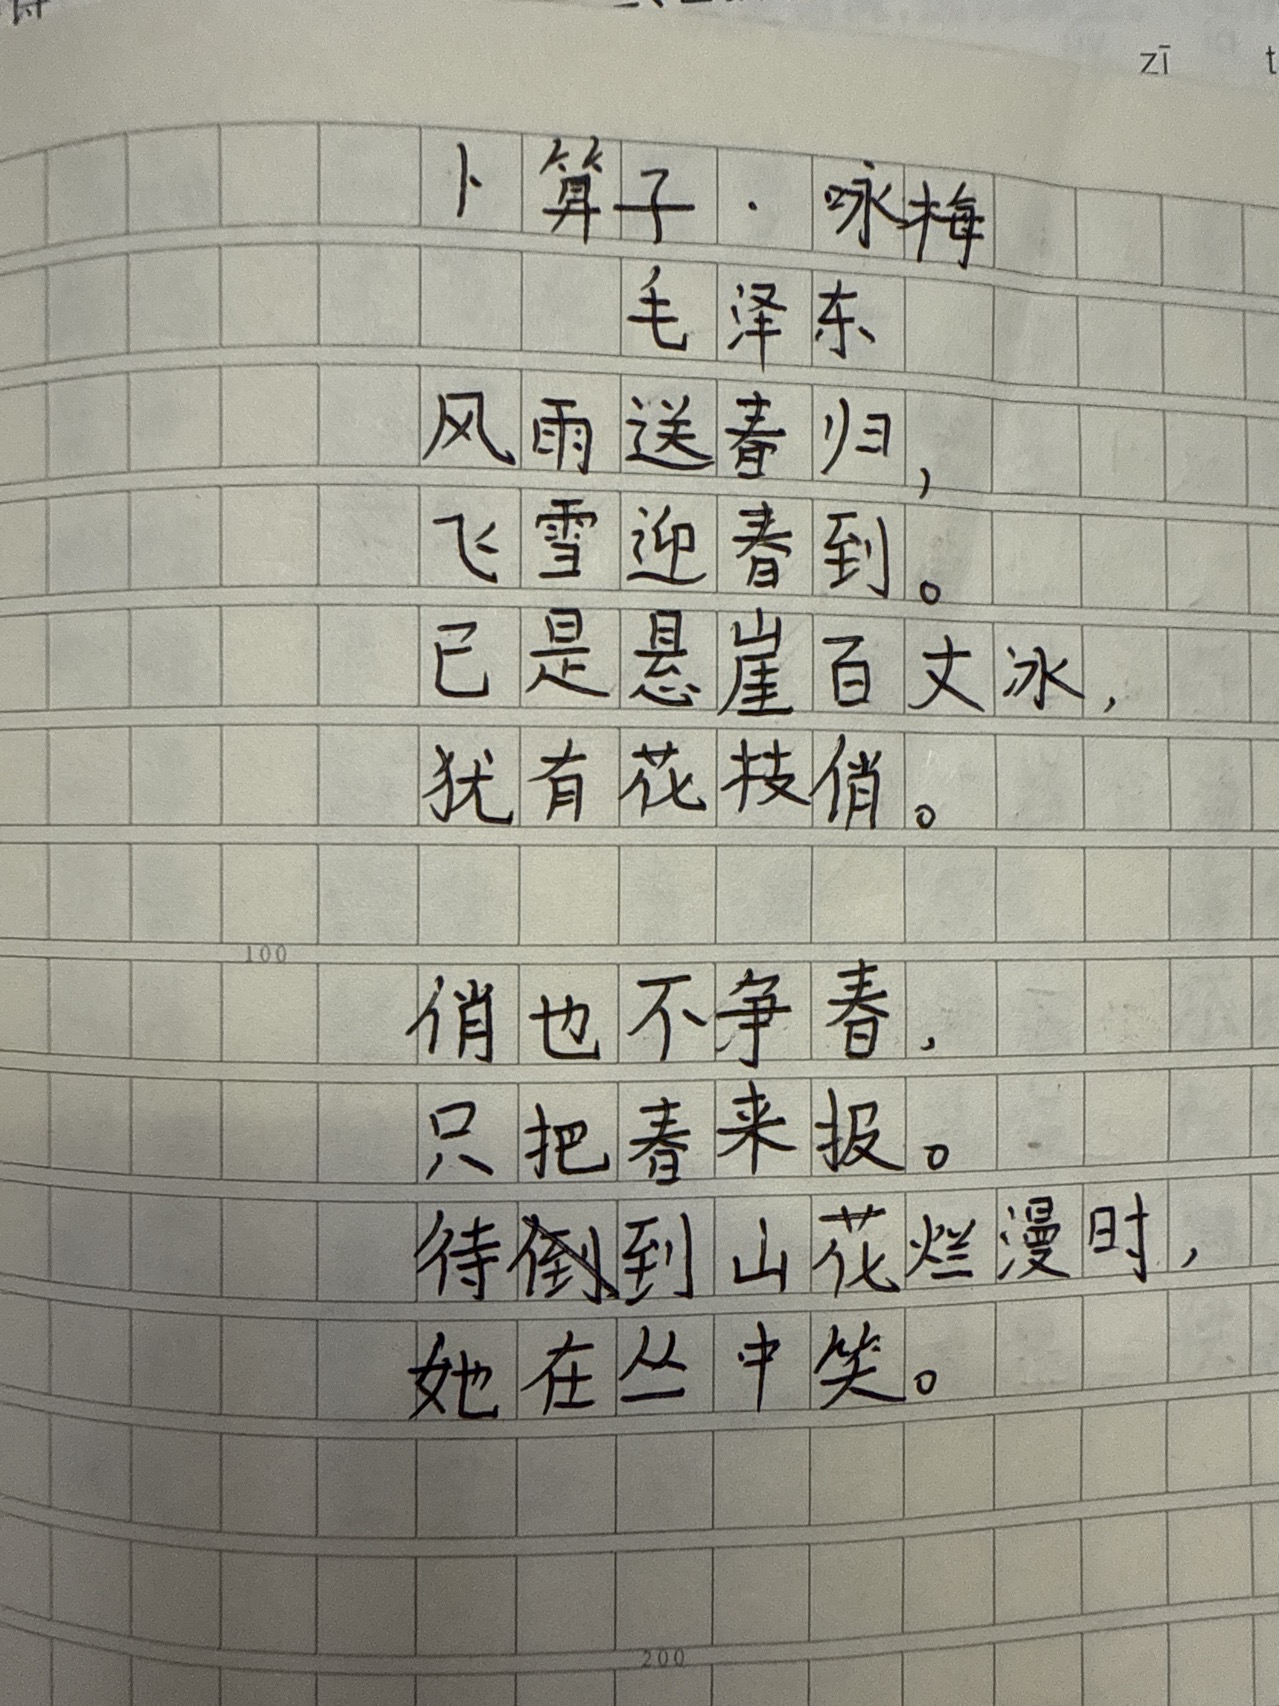 zī
卜算子·咏梅
毛泽东
风雨送春归，
飞雪迎春到。
已是悬崖百丈冰，
犹有花技俏。
100
俏也不争春，
只把春来报。
待到山花烂漫时，
她在丛中笑。
200